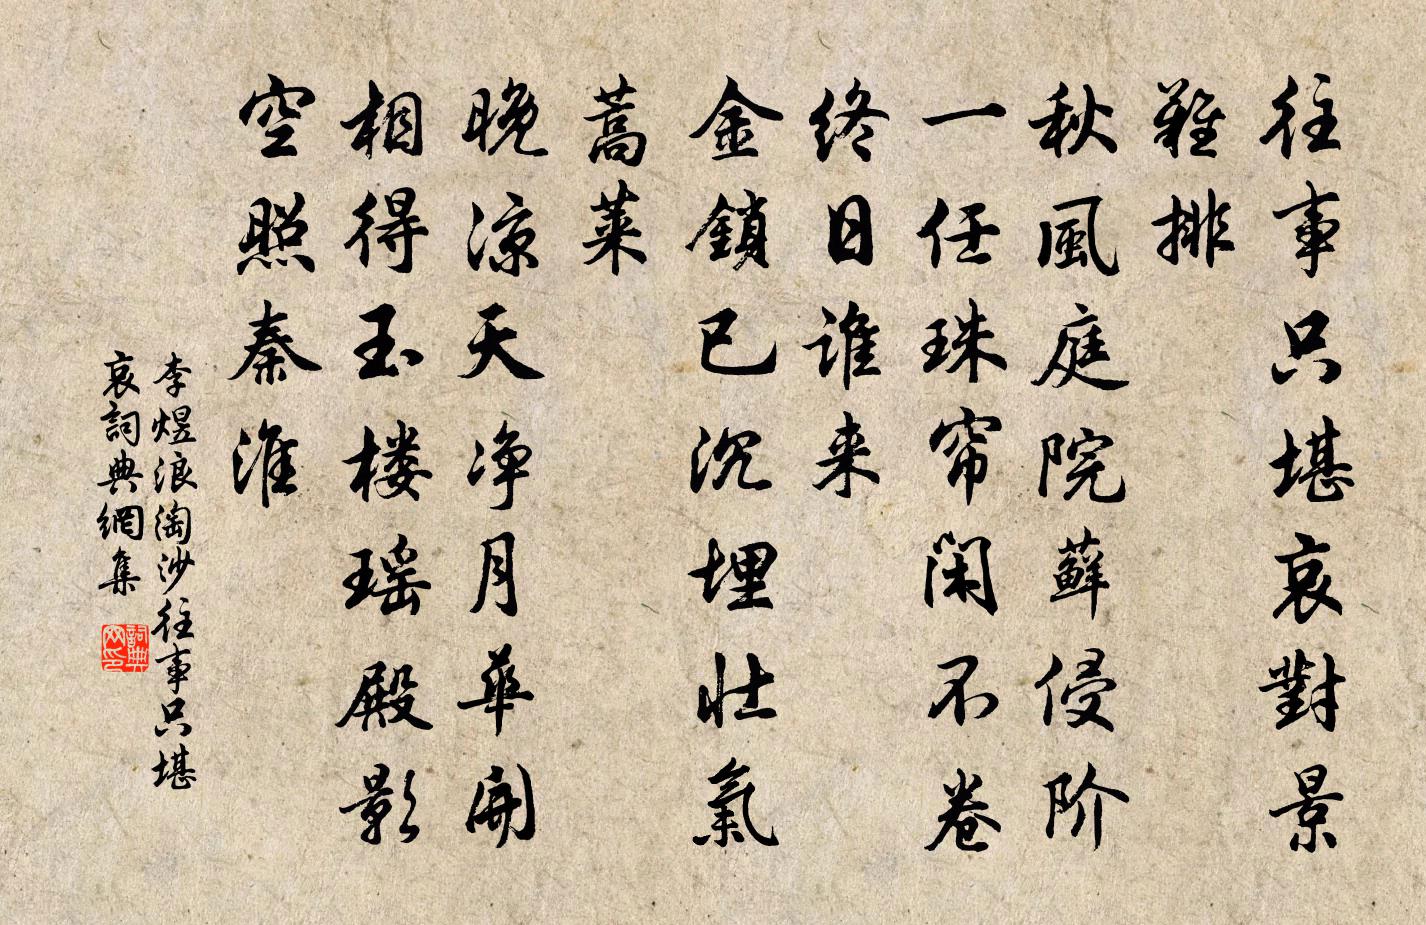 往事只堪哀對景
難排
秋風庭院蘚侵阶
一任珠帘閑不卷
終日誰来
金鎖已沉埋壯氣
蒿萊
晚凉天净月華開
相得玉楼瑶殿影
空照秦淮
李煜浪淘沙往事只堪
哀詞典網集
詞典
网印